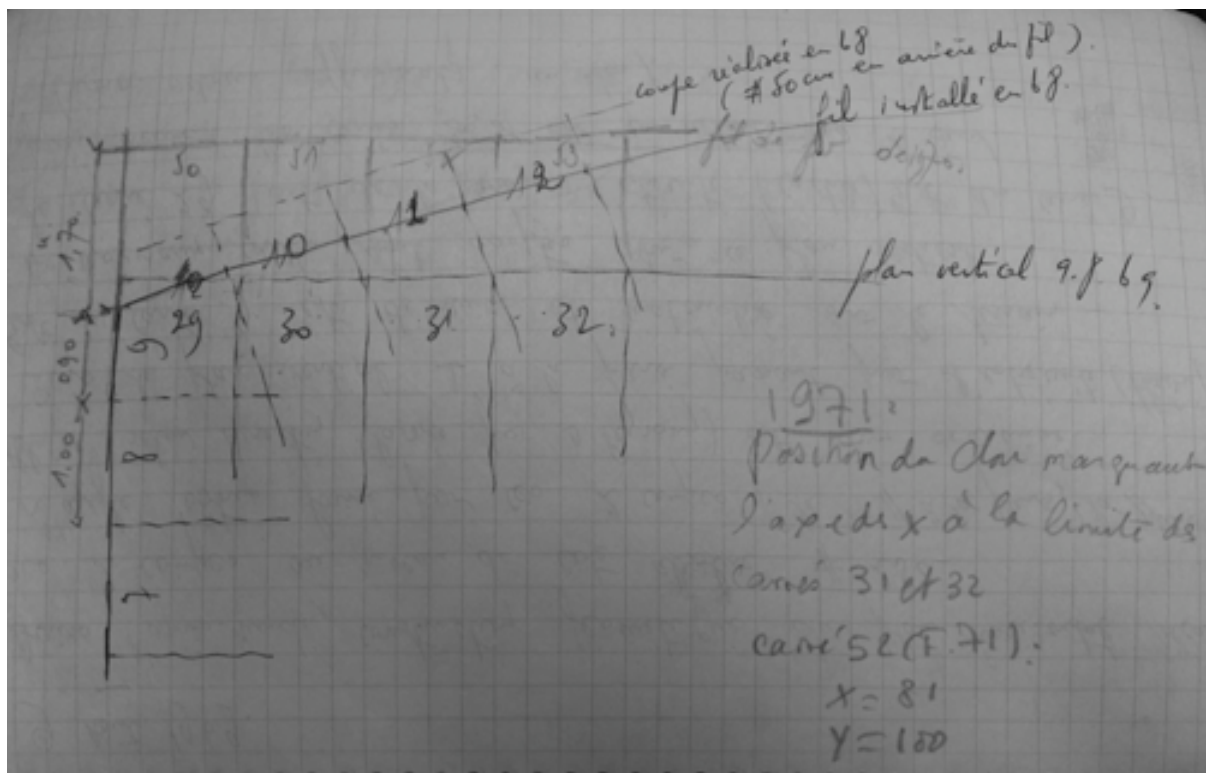 coupe réalisée en 68
(# 50 cm en arrière du fil).
fil installé en 68.
50 51 53
10 11 12
plan vertical a.f 69.
29 30 31 32.
9
8
7
1,70
0,90
1.00
1971:
Position du clou marquant
l'axe ds x à la limite ds
carrés 31 et 32
carré 52 (F.71):
X = 81
Y = 100